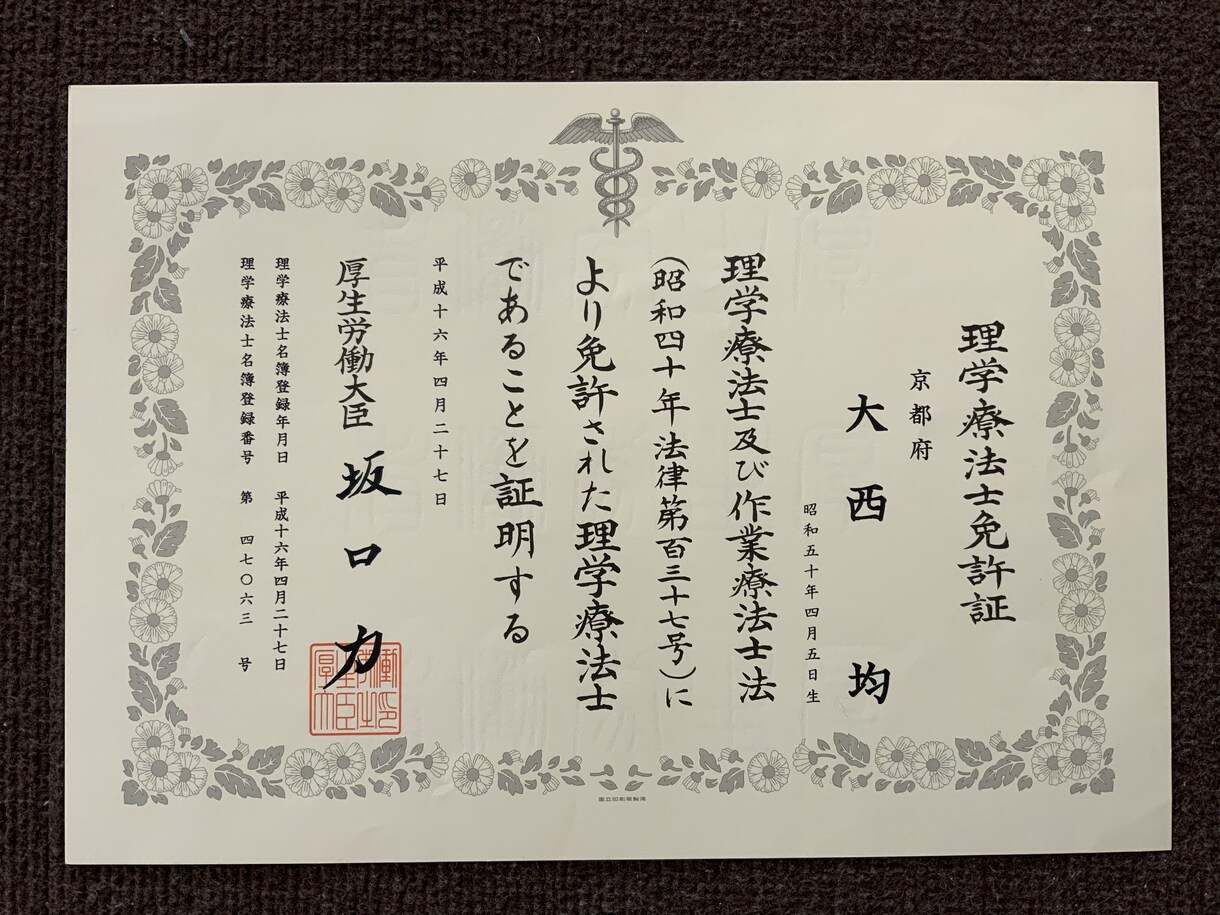 理学療法士免許証
京都府
大西均
昭和五十年四月五日生
理学療法士及び作業療法士法
(昭和四十年法律第百三十七号)に
より免許された理学療法士
であることを証明する
平成十六年四月二十七日
厚生労働大臣 坂口力
理学療法士名簿登録年月日 平成十六年四月二十七日
理学療法士名簿登録番号 第 四七〇六三 号
国立印刷局製造